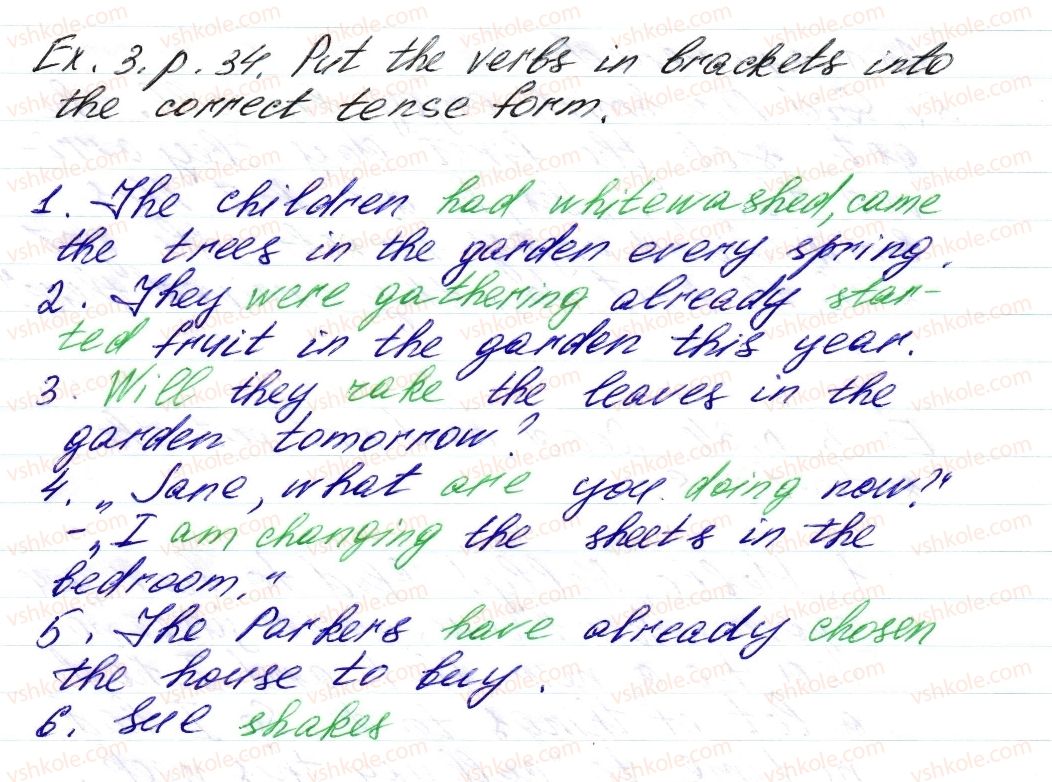 Ex. 3. p. 34. Put the verbs in brackets into
the correct tense form.
1. The children had whitewashed, came
the trees in the garden every spring.
2. They were gathering already star-
ted fruit in the garden this year.
3. Will they rake the leaves in the
garden tomorrow?
4. „Jane, what are you doing now?"
- „I am changing the sheets in the
bedroom."
5. The Parkers have already chosen
the house to buy.
6. Sue shakes